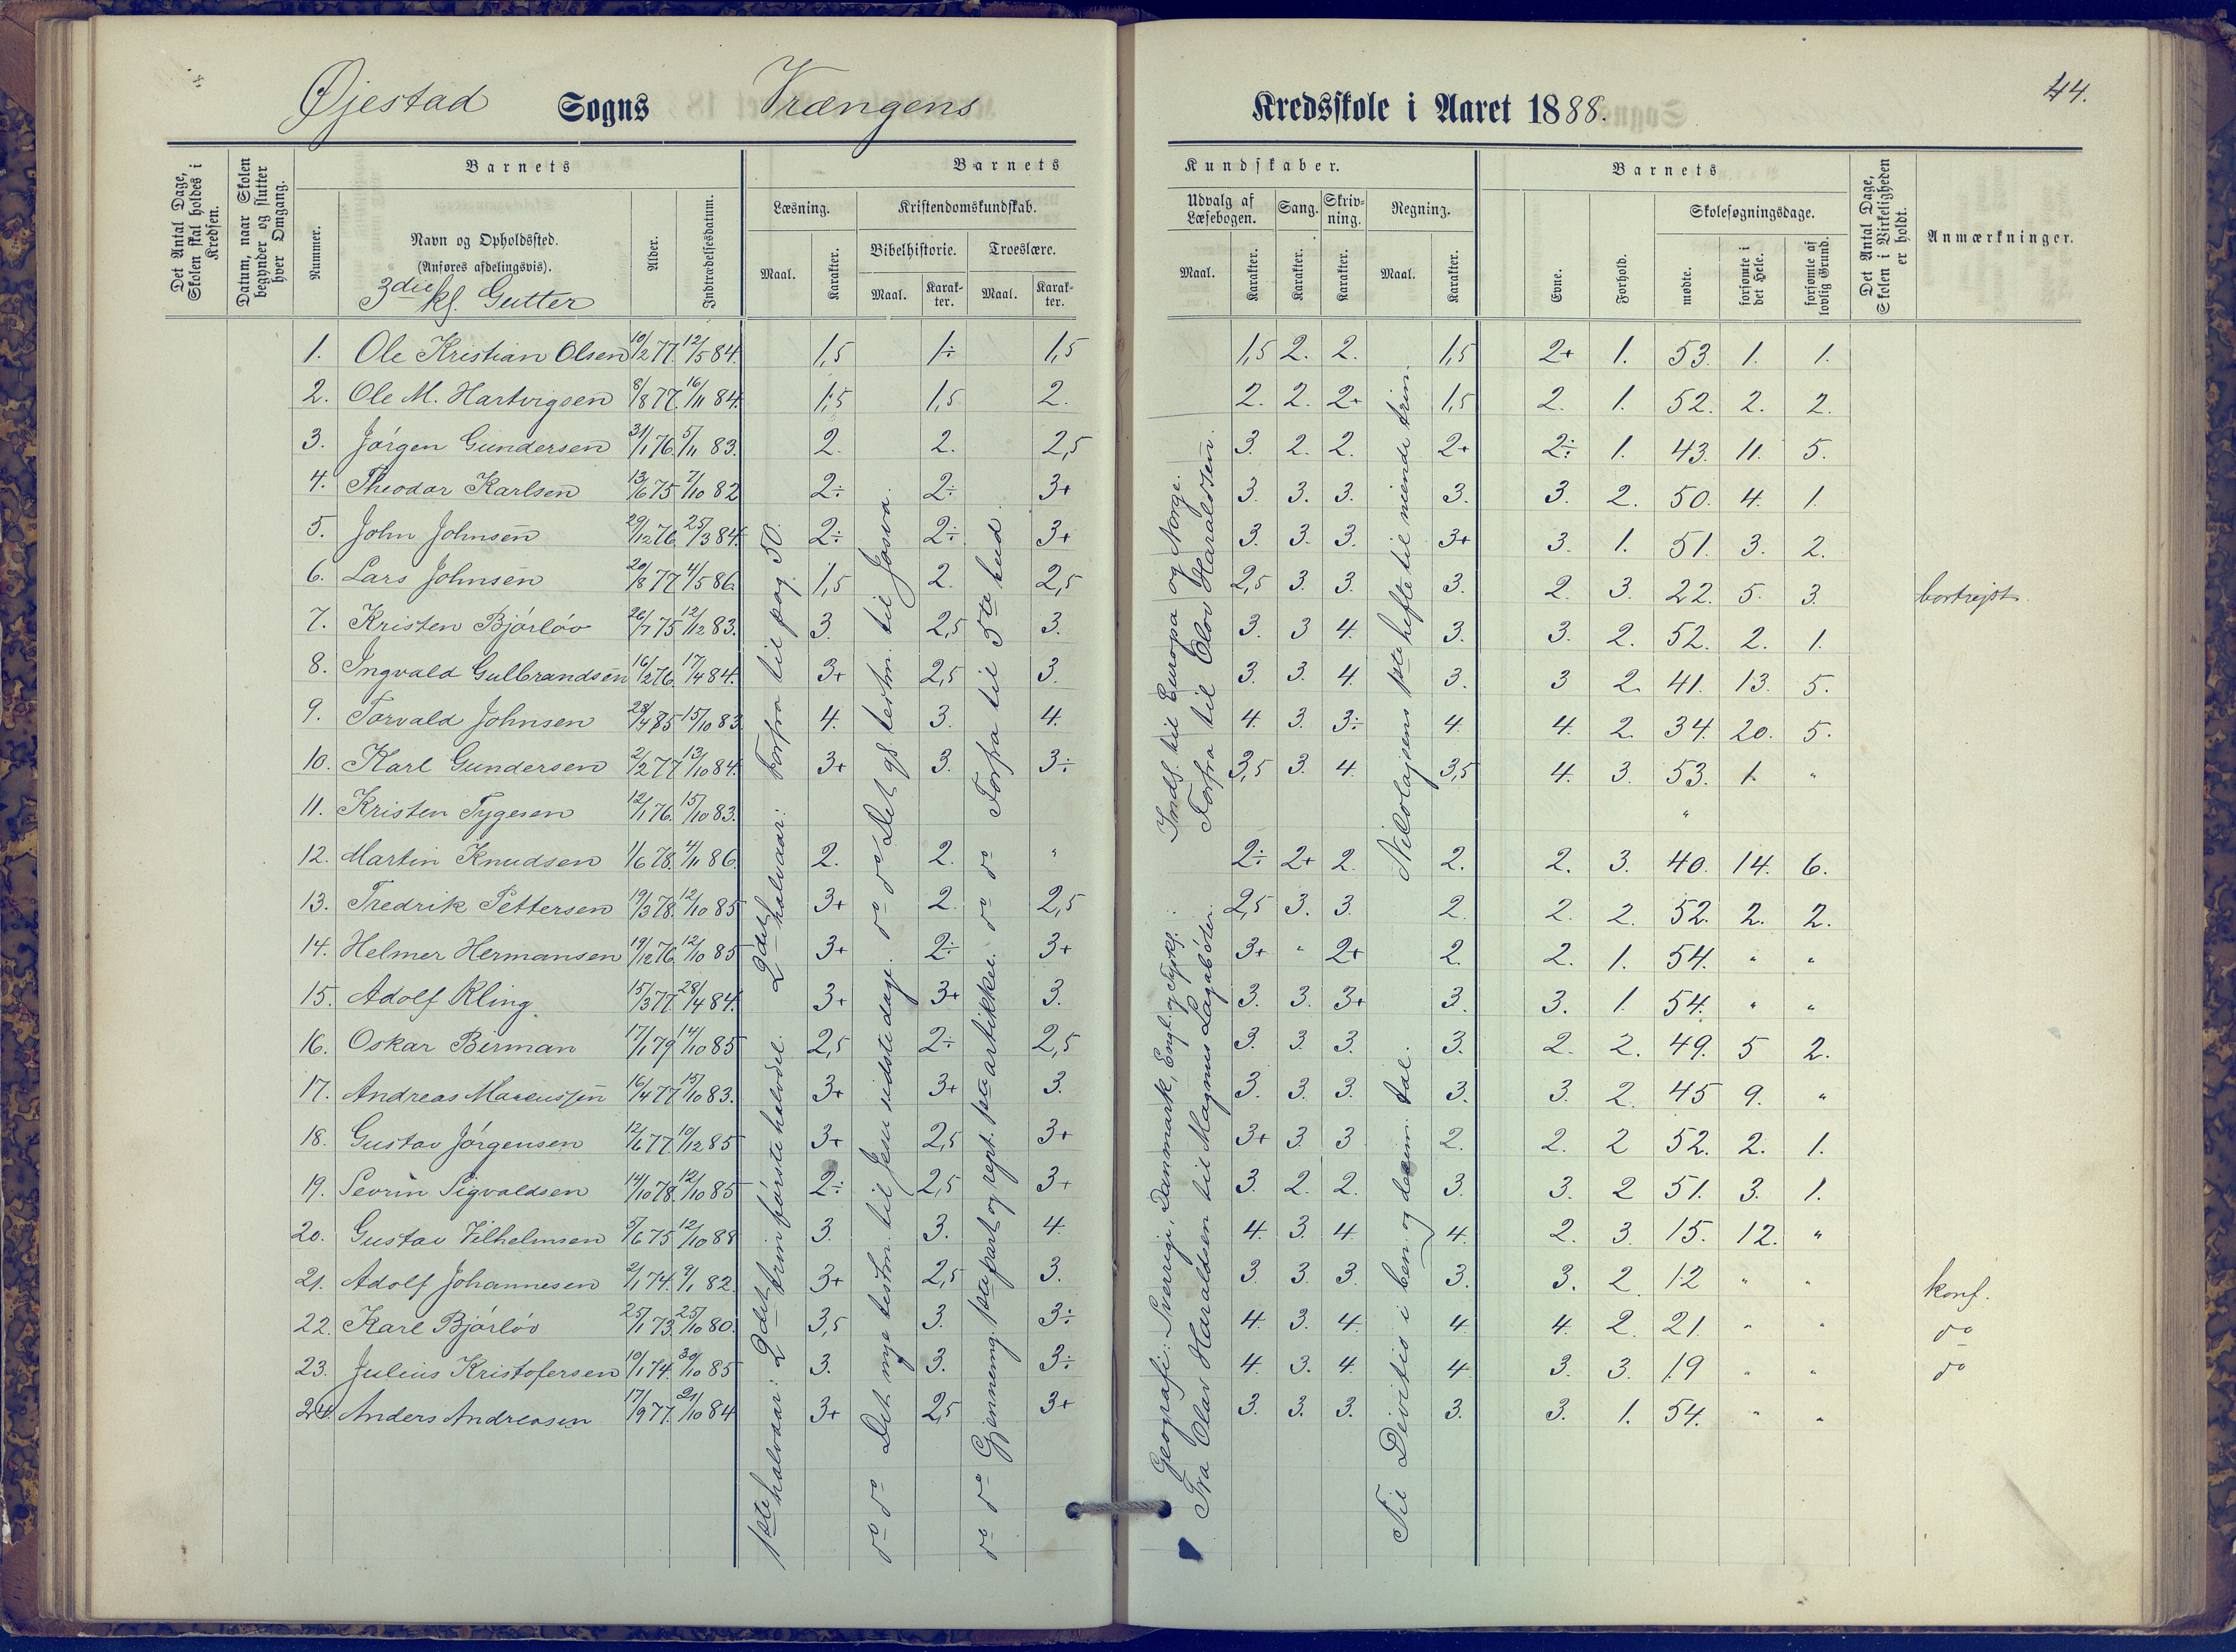 44.
Øjestad Sogns Vrængens Kredsskole i Aaret 1888.
Det Antal Dage, Skolen skal holdes i Kredsen.
Datum, naar Skolen begynder og slutter hver Omgang.
Barnets
Nummer.
Navn og Opholdssted.
(Anføres afdelingsvis).
3die kl. Gutter
Alder.
Indtrædelsesdatum.
Barnets Kundskaber.
Læsning. Kristendomskundskab. Udvalg af Læsebogen. Sang. Skrivning. Regning.
Bibelhistorie. Troeslære.
Maal. Karakter. Maal. Karakter. Maal. Karakter. Maal. Karakter. Karakter. Karakter. Maal. Karakter.
Barnets
Evne. Forhold. Skolesøgningsdage.
mødte. forsømte i det Hele. forsømte af lovlig Grund.
Det Antal Dage, Skolen i Virkeligheden er holdt.
Anmærkninger.
1. Ole Kristian Olsen 10/2 77. 12/5 84. 1,5 1÷ 1,5 1,5 2. 2. 1,5 2+ 1. 53. 1. 1.
2. Ole M. Hartvigsen 8/8 77. 16/11 84. 1,5 1,5 2. 2. 2. 2+ 1,5 2. 1. 52. 2. 2.
3. Jørgen Gundersen 31/1 76. 5/11 83. 2. 2. 2,5 3. 2. 2. 2+ 2÷ 1. 43. 11. 5.
4. Theodor Karlsen 13/6 75 7/10 82 2÷ 2÷ 3+ 3. 3. 3. 3. 3. 2. 50. 4. 1.
5. John Johnsen 29/12 76. 25/3 84. 2÷ 2÷ 3+ 3. 3. 3. 3+ 3. 1. 51. 3. 2.
6. Lars Johnsen 20/8 77 4/5 86. 1,5 2. 2,5 2,5 3. 3. 3. 2. 3. 22. 5. 3. bortrejst.
7. Kristen Bjórlóv 26/7 75 12/12 83. 3. 2,5 3. 3. 3 4. 3. 3. 2. 52. 2. 1.
8. Ingvald Gulbrandsen 16/2 76. 17/4 84. 3+ 2,5 3. 3. 3. 4. 3. 3 2. 41. 13. 5.
9. Torvald Johnsen 28/4 85 15/10 83. 4. 3. 4. 4. 3. 3÷ 4. 4. 2. 34. 20. 5.
10. Karl Gundersen 2/2 77 13/10 84. 3+ 3. 3÷ 3,5 3. 4. 3,5 4. 3. 53. 1. "
11. Kristen Tygesen 12/1 76. 15/10 83. "
12. Martin Knudsen 1/6 78. 4/11 86. 2. 2. " 2÷ 2+ 2. 2. 2. 3. 40. 14. 6.
13. Fredrik Pettersen 19/3 78. 12/10 85 3+ 2. 2,5 2,5 3. 3. 2. 2. 2. 52. 2. 2.
14. Helmer Hermansen 19/12 76. 12/10 85 3+ 2÷ 3+ 3+ " 2+ 2. 2. 1. 54. " "
15. Adolf Kling. 15/3 77. 28/4 84. 3+ 3+ 3. 3. 3. 3+ 3. 3. 1. 54. " "
16. Oskar Birman 17/1 79 14/10 85 2,5 2÷ 2,5 3. 3. 3. 3. 2. 2. 49. 5 2.
17. Andreas Marcussen 16/4 77 15/10 83. 3+ 3+ 3. 3. 3. 3. 3. 3. 2. 45 9. "
18. Gustav Jörgensen 12/6 77. 10/12 85 3+ 2,5 3+ 3+ 3. 3 2. 2. 2 52. 2. 1.
19. Sevrin Sigvaldsen 14/10 78. 12/10 85 2÷ 2,5 3+ 3. 2. 2. 3. 3. 2 51. 3. 1.
20. Gustav Vilhelmsen 5/6 75 12/10 88 3. 3. 4. 4. 3. 4. 4. 2. 3. 15. 12. "
21. Adolf Johannesen 2/1 74. 9/1 82. 3+ 2,5 3. 3. 3. 3. 3. 3. 2. 12 " " konf.
22. Karl Bjórlóv 25/1 73. 25/10 80. 3,5 3. 3÷ 4. 3. 4. 4. 4. 2. 21. " " do
23. Julius Kristofersen 10/1 74. 30/10 85 3. 3. 3÷ 4. 3. 4. 4 3. 3. 19 " " do
24. Anders Andreasen 17/9 77. 21/10 84 3+ 2,5 3+ 3. 3. 3. 3. 3. 1. 54. " "
1ste halvaar: 2det trin første halvdel. 2det halvaar: Forfra til pag. 50.
do do Det nye testm. til Jesu sidste dage. do do Det gl. testm. til Josva.
do do Gjennemg. 1ste part og rept. 1ste artikkel. do do Forfra til 5te bud.
Geografi: Sverrige, Danmark, Engl. og Tyskl.: Indl. til Europa og Norge.
Fra Olav Haraldsen til Magnus Lagabøter. Forfra til Olav Haraldssen.
Til Divisis i ben. og decim. tal. Nikolajsens 1ste hefte til niende trin.